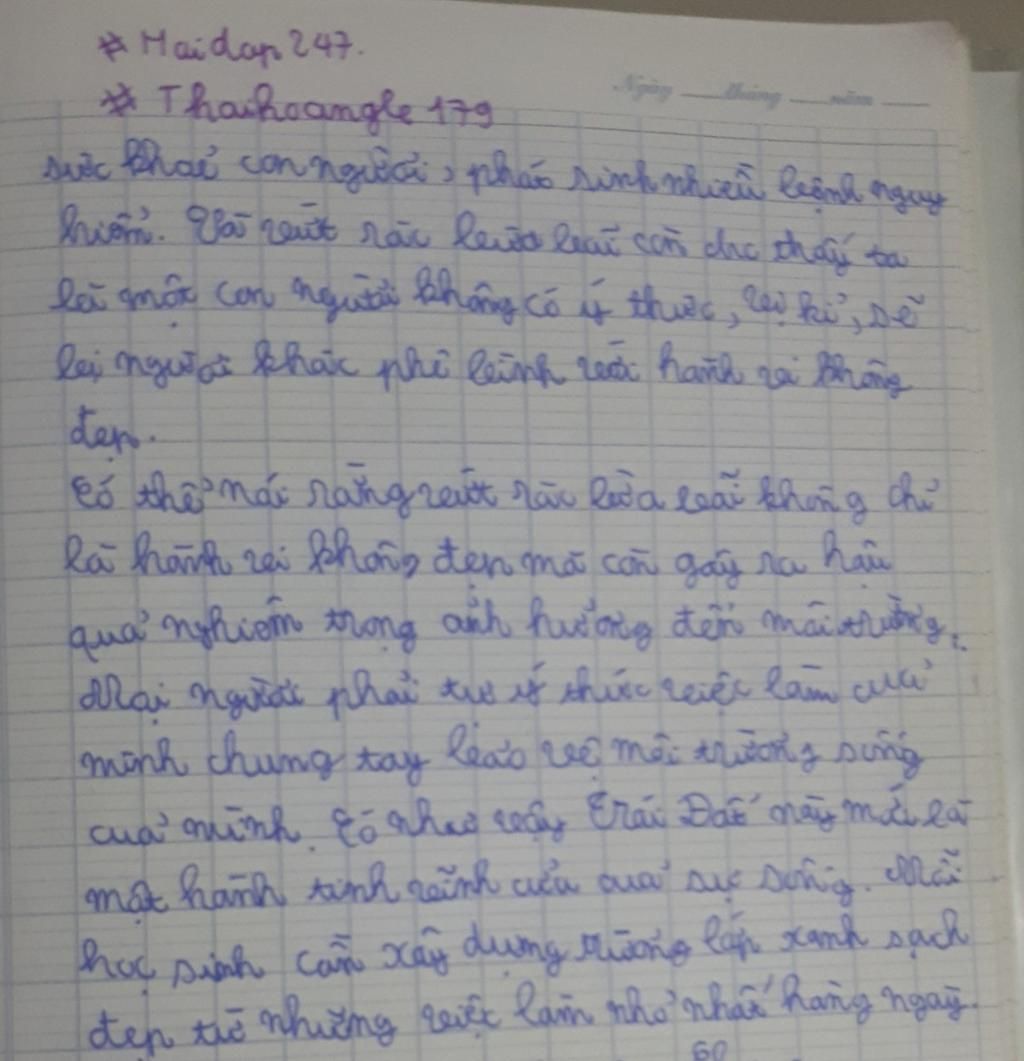 # Hoidap247.
# Thaihoangle179
Ngày tháng năm
sức khoẻ con người, phát sinh nhiều bệnh nguy
hiểm. Và vứt rác bừa bãi còn cho thấy ta
là một con người không có ý thức, vị kỉ, sẽ
bị người khác phê bình với hành vi không
đẹp.
Có thể nói rằng vứt rác bừa bãi không chỉ
là hành vi không đẹp mà còn gây ra hậu
quả nghiêm trọng ảnh hưởng đến môi trường.
Mọi người phải tự ý thức việc làm của
mình chung tay bảo vệ môi trường sống
của mình. Có như vậy Trái Đất này mới là
một hành tinh xanh của sự sống. Mỗi
học sinh cần xây dựng trường lớp xanh sạch
đẹp từ những việc làm nhỏ nhất hằng ngày.
60